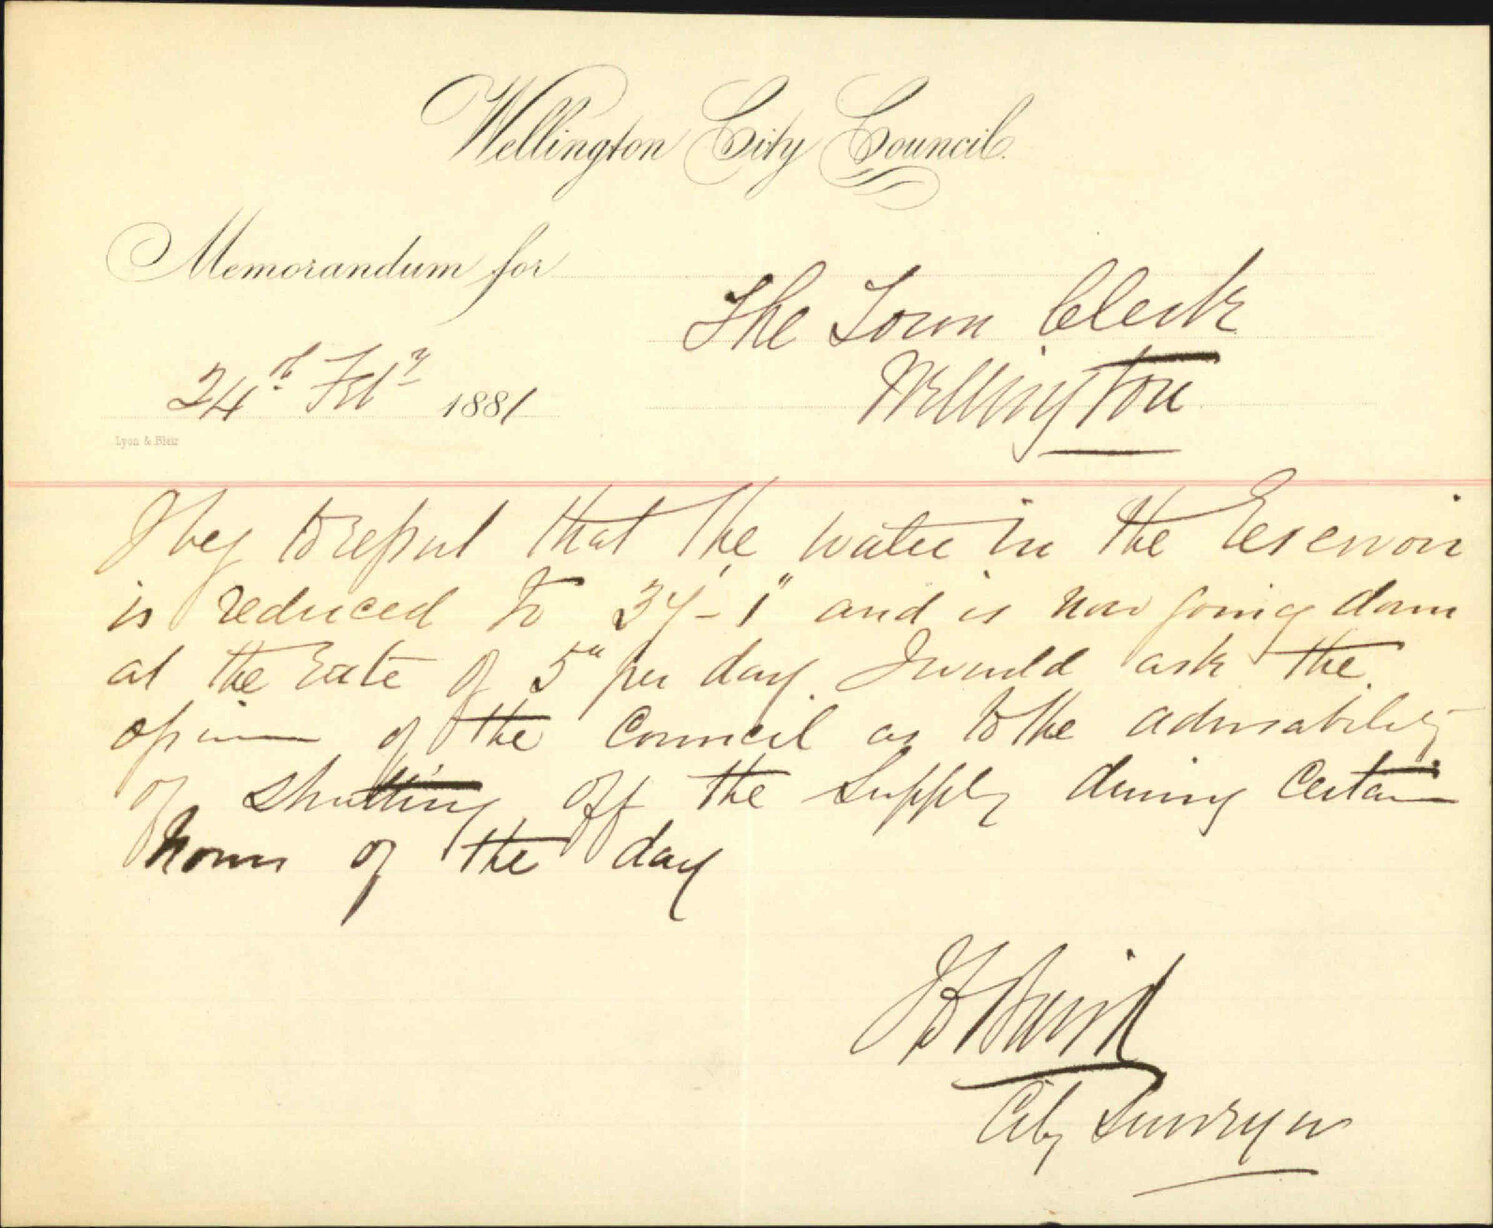 Wellington City Council.
Memorandum for
The Town Clerk
Wellington
24th Feby 1881
Lyon & Blair
I beg to report that the water in the Reservoir
is reduced to 34'-1" and is now going down
at the rate of 5" per day. I would ask the
opinion of the Council as to the advisability
of shutting off the supply during certain
hours of the day
J D Baird
City Surveyor